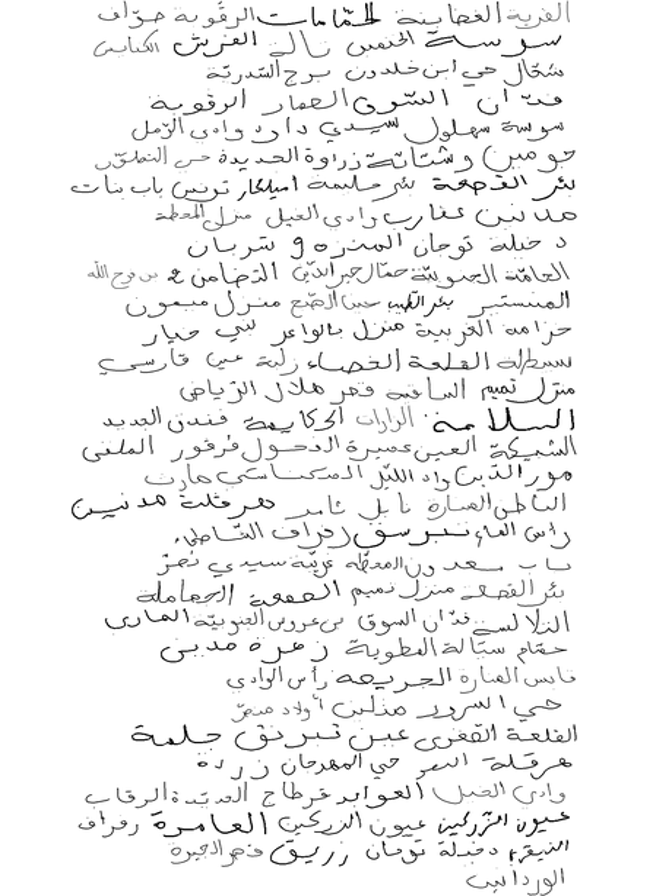 القرية الفضايبية الحمّامات الرقّوبة صوّاف
سوسة الخنفس تالة العرش الكنايس
شمّال حي ابن خلدون برج السّدريّة
فدّان السّوق العمار الرقوبة
سوسة سهلول سيدي داود وادي الرّمل
جومين وشتاتة زراوة الجديدة حي التطوّر
بئر القصعة بئر حليمة اميلكار تونس باب بنات
مدنين عقارب وادي الغيل منزل المحطة
دخيلة توجان المنزه 9 شربان
العامّة الجنوبيّة حمّال خير الدّين التّضامن 2 بن فرج الله
المنستير بئر الطيب عين الضّبع منزل ميمون
حزامة الغربية منزل بالواعر بني خيار
سبيطلة القلعة الخصاء زلبة عين فارسي
منزل تميم الساقية قصر هلال الرّياض
السلامة الرارات الحكايمة فندق الجديد
الشبيكة العين عميرة الفحول قرقور الملقى
مور الدّين واد اللّيل المكناسي مارث
الباطن المنارة نابل ثامر هرقلة مدنين
رأس الماء نبرسق زفراف الشّاطئ
باب سعدون المحطّة عربيّة سيدي نصر
بئر القصعة منزل تميم الصمعة الجماملة
التلالسة فدّان السوق بن عروس الجنوبيّة الهاري
حمّام سيّالة المطوية زهرة مدين
قابس المنارة الجريصة رأس الوادي
حي السرور مدنين أولاد منصر
القلعة الصّغرى عين نبرنق جلمة
هرقلة النصر حي المهرجان زردة
وادي الغيل العوابد قرطاج الجديدة الرقاب
عيون الزّركين عيون الزركين العامرة رفراف
النيفر دخيلة توجان زريق قصر الجيرة
الوردانين